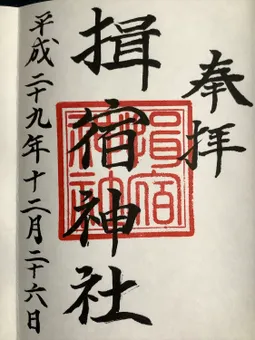 奉拝
揖宿神社
平成二十九年十二月二十六日
揖宿神社